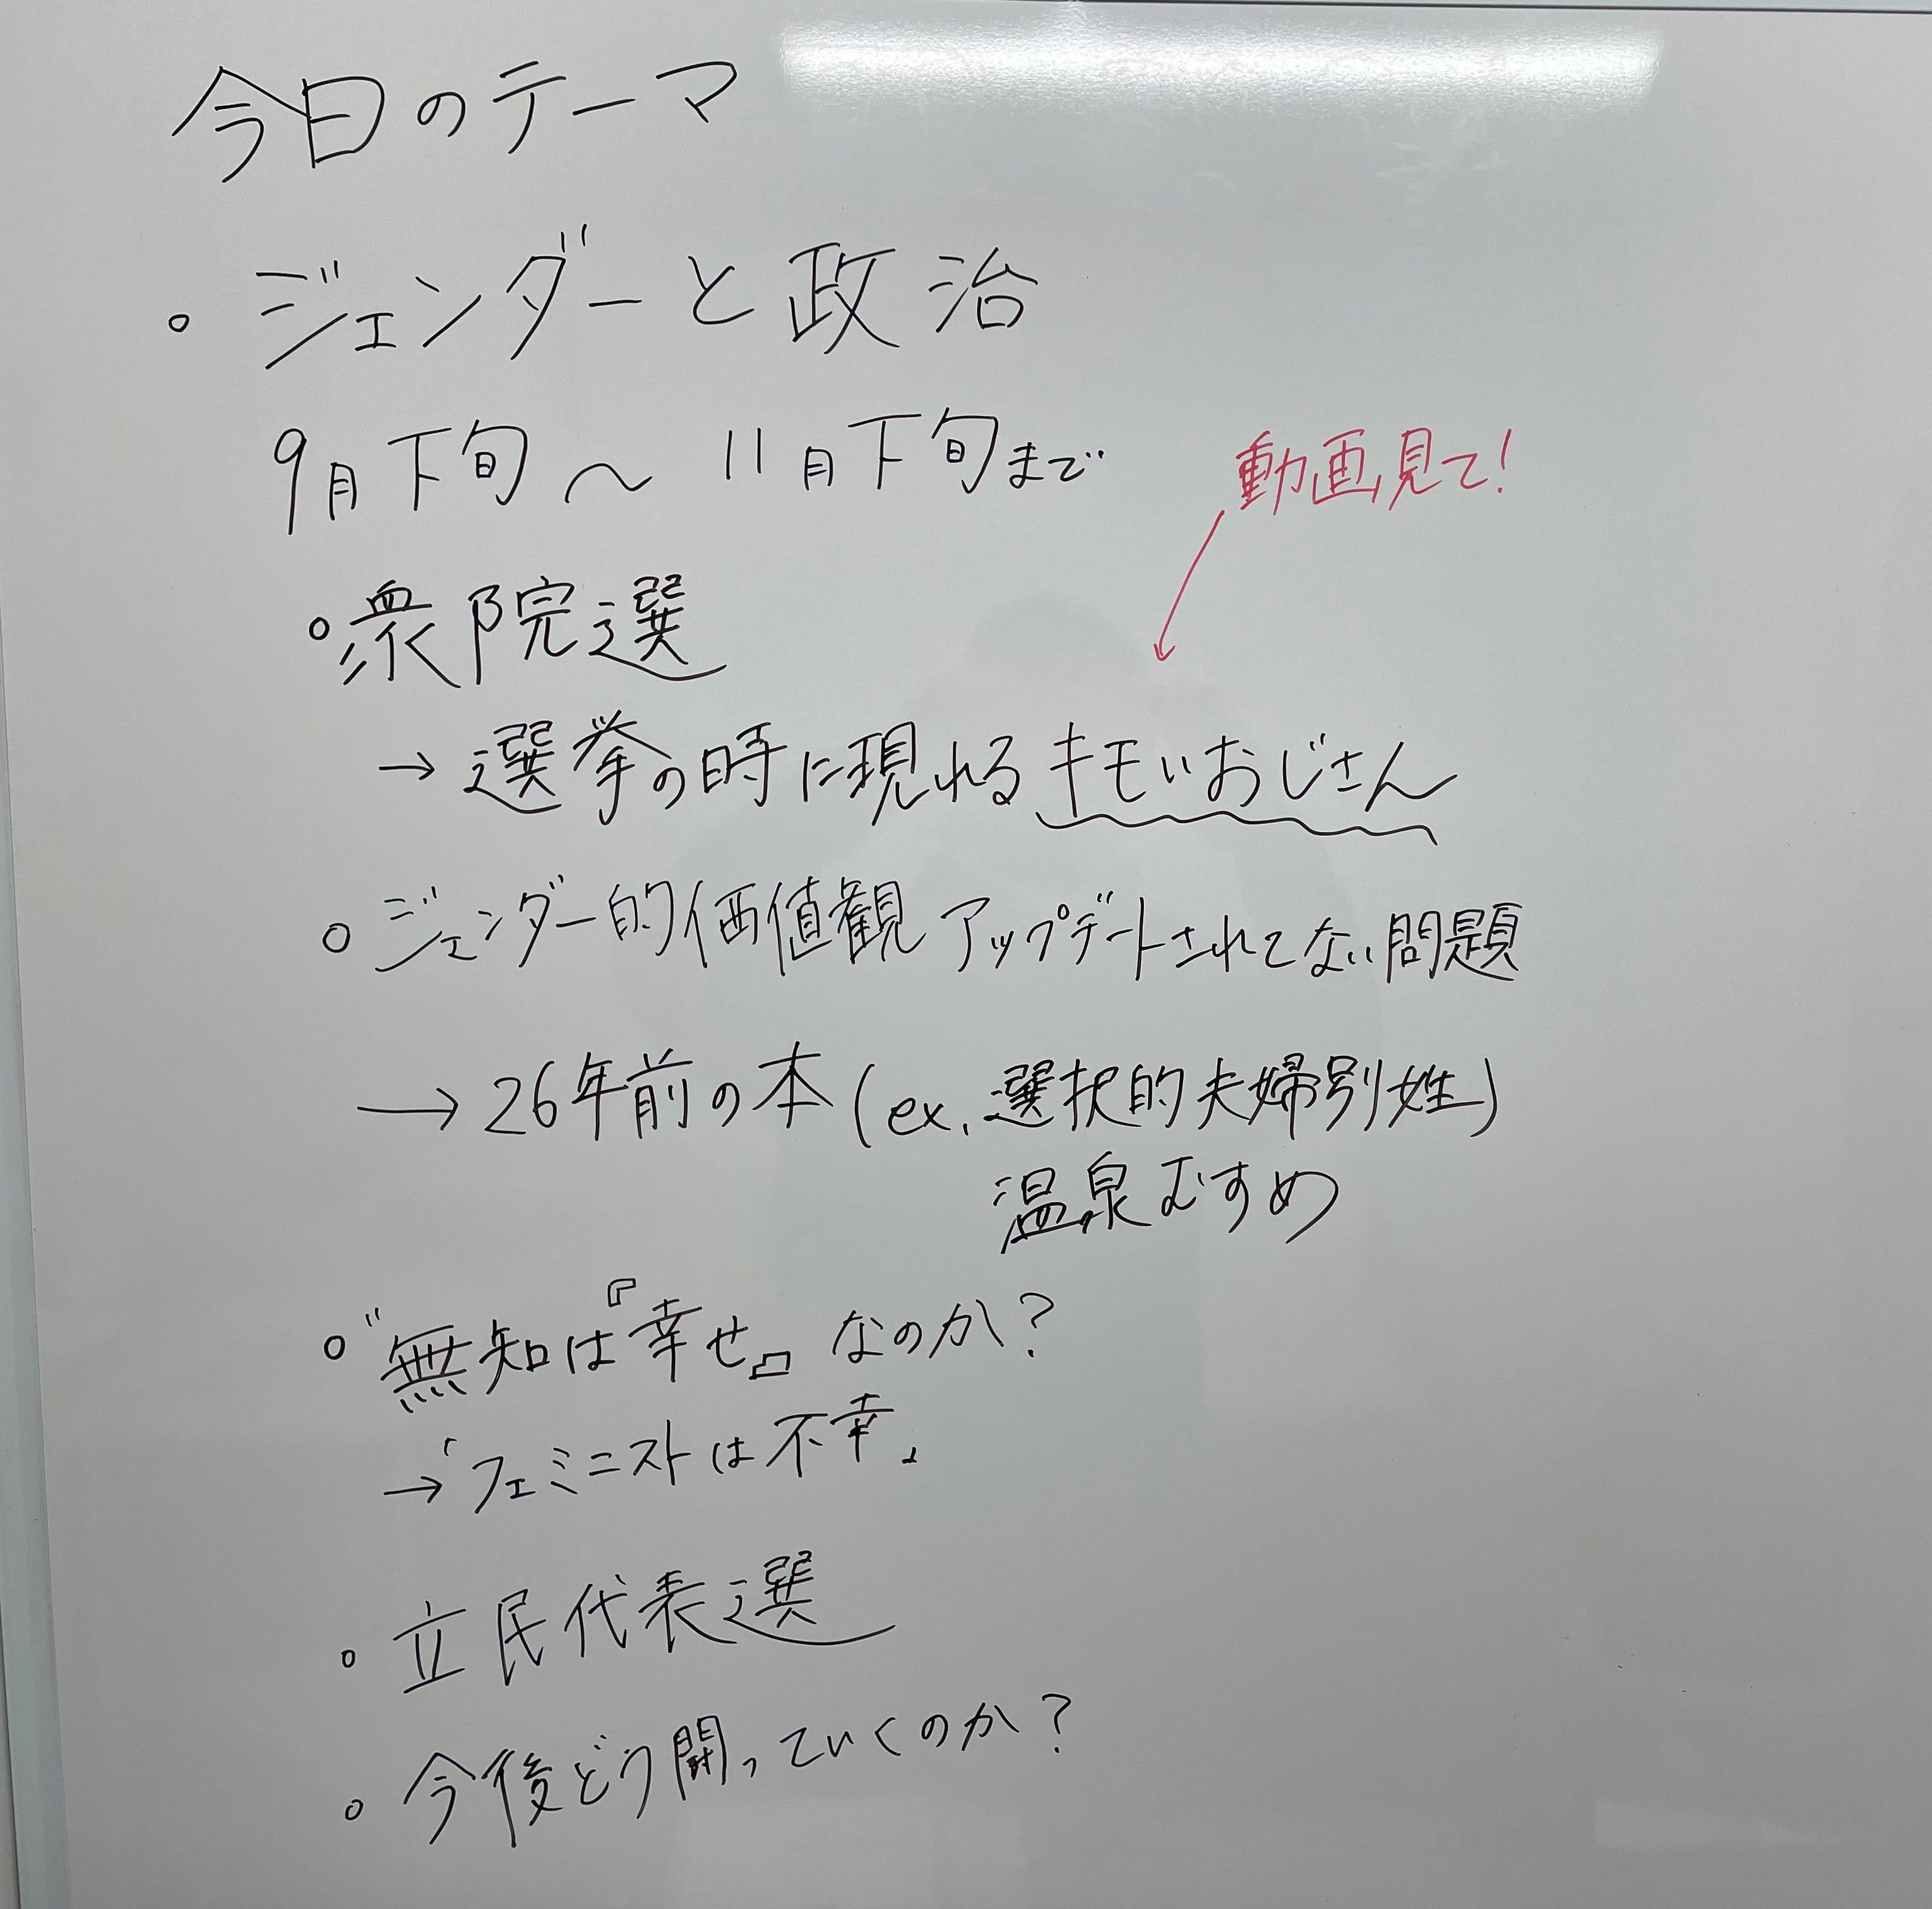 今日のテーマ
。ジェンダーと政治
9月下旬～11月下旬まで
動画見て!
。衆院選
→選挙の時に現れるキモいおじさん
。ジェンダー的価値観アップデートされてない問題
→26年前の本(ex.選択的夫婦別姓)
温泉むすめ
。"無知は『幸せ』なのか?
→「フェミニストは不幸」
。立民代表選
。今後どう闘っていくのか?